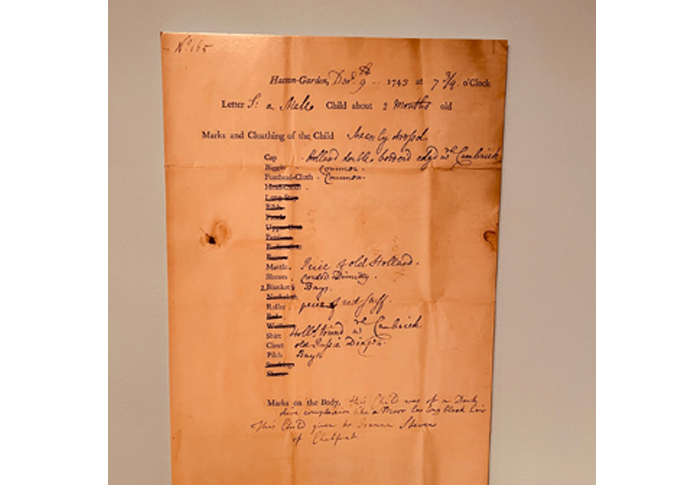 No. 165
Hatton-Garden, Decr. 9th 1743 at 7 3/4 o'Clock
Letter S: a Male Child about 2 Months old
Marks and Cloathing of the Child Meanly dressed
Cap Holland double bord edg'd wth Cambrick
Biggin Common
Forehead-Cloth Common
Head-Cloth
Long-Stay
Bibb
Upper-Coat
Petticoat
Bodice-Coat
Barrow
Mantle Peice of old Holland.
Sleeves corded Dimitty.
2 Blanket Bays
Neckcloth
Roller peice of red stuff.
Bed
Waistcoat
Shirt Holld. bound wth Cambrick
Clout old Russia Diaper.
Pilch Bays
Stockings
Shoes
Marks on the Body, this Child was of a Dark
olive complextion like a Moor has long black hair
This Child given to Joanna Stevens
of Chelfont